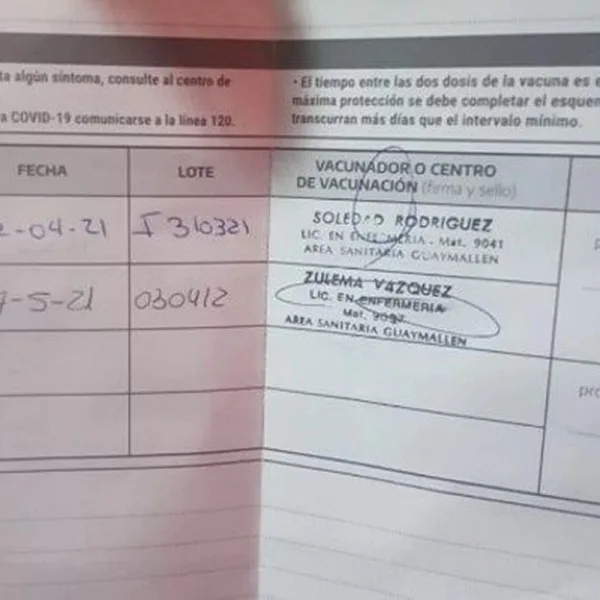 ta algún síntoma, consulte al centro de
a COVID-19 comunicarse a la línea 120.
• El tiempo entre las dos dosis de la vacuna es
máxima protección se debe completar el esquem
transcurran más días que el intervalo mínimo.
FECHA LOTE VACUNADOR O CENTRO
DE VACUNACIÓN (firma y sello)
-04-21 I 310321 SOLEDAD RODRIGUEZ
LIC. EN ENFERMERIA - Mat. 9041
AREA SANITARIA GUAYMALLEN
-5-21 030412 ZULEMA VAZQUEZ
LIC. EN ENFERMERIA
Mat.
AREA SANITARIA GUAYMALLEN
pro